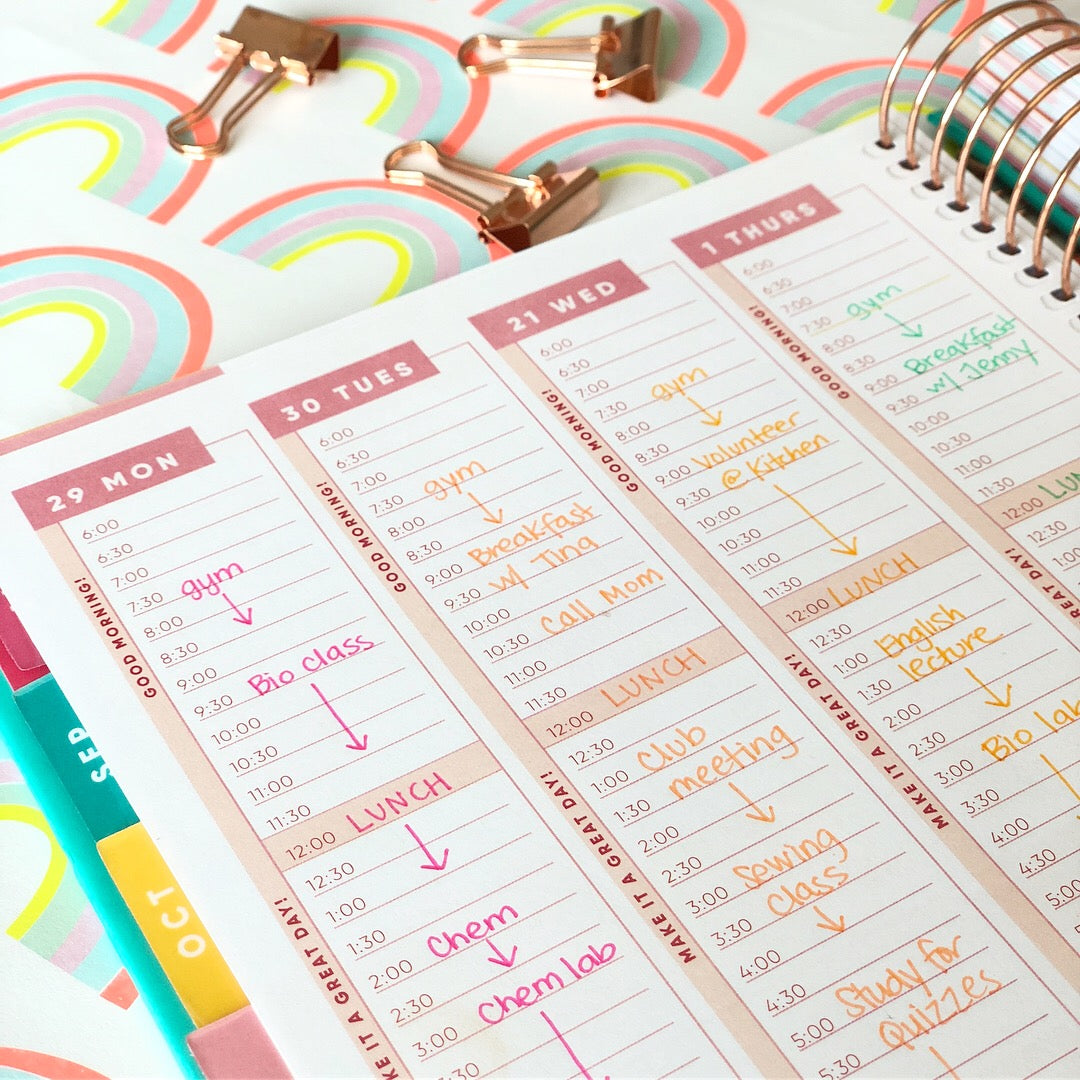 29 MON
6:00
6:30
7:00
7:30 gym
8:00
8:30
9:00
9:30 Bio class
10:00
10:30
11:00
11:30
12:00 LUNCH
12:30
1:00
1:30
2:00 Chem
2:30
3:00 Chem lab
GOOD MORNING!
KE IT A GREAT DAY!
30 TUES
6:00
6:30
7:00
7:30 gym
8:00
8:30
9:00 Breakfast
9:30 w/ Tina
10:00
10:30 call Mom
11:00
11:30
12:00 LUNCH
12:30
1:00 Club
1:30 meeting
2:00
2:30
3:00 Sewing
3:30 class
4:00
4:30
5:00 Study for
5:30 quizzes
GOOD MORNING!
MAKE IT A GREAT DAY!
21 WED
6:00
6:30
7:00
7:30 gym
8:00
8:30
9:00 volunteer
9:30 @ Kitchen
10:00
10:30
11:00
11:30
12:00 LUNCH
12:30
1:00 English
1:30 lecture
2:00
2:30
3:00 Bio lab
3:30
4:00
4:30
5:00
GOOD MORNING!
MAKE IT A GREAT DAY!
1 THURS
6:00
6:30
7:00
7:30 gym
8:00
8:30
9:00 Breakfast
9:30 w/ Jenny
10:00
10:30
11:00
11:30
12:00 LUN
12:30
1:00
GOOD MORNING!
SEP
OCT